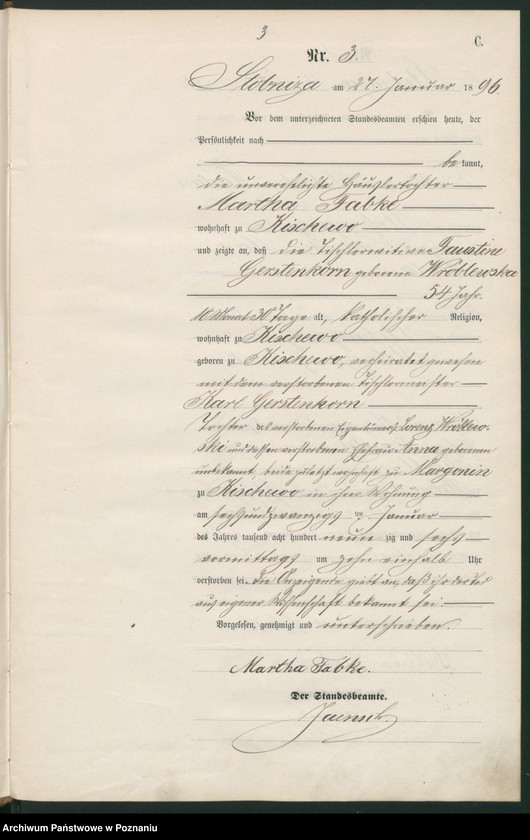 3
C.
Nr. 3.
Stobniza am 27. Januar 1896
Vor dem unterzeichneten Standesbeamten erschien heute, der
Persönlichkeit nach
bekannt,
die unverehelichte Häuslertochter
Martha Fabke
wohnhaft zu Kischewo
und zeigte an, daß die Tischlerwitwe Faustine
Gerstenkorn geborene Wróblewska
54 Jahr.
10 Monat 30 Tage alt, katholischer Religion,
wohnhaft zu Kischewo
geboren zu Kischewo, verheiratet gewesen
mit dem verstorbenen Tischlermeister
Karl Gerstenkorn
Tochter des verstorbenen Eigentümers Lorenz Wróblew-
ski und dessen verstorbenen Ehefrau Anna geborenen
unbekannt, beide zuletzt wohnhaft zu Margonin
zu Kischewo in ihrer Wohnung
am sechsundzwanzigsten Januar
des Jahres tausend acht hundert neunzig und sechs
vormittags um zehn einhalb Uhr
verstorben sei. Die Anzeigende giebt an, daß ihr der Tod
aus eigener Wissenschaft bekannt sei.
Vorgelesen, genehmigt und unterschrieben.
Martha Fabke.
Der Standesbeamte.
Jaensch.
Archiwum Państwowe w Poznaniu